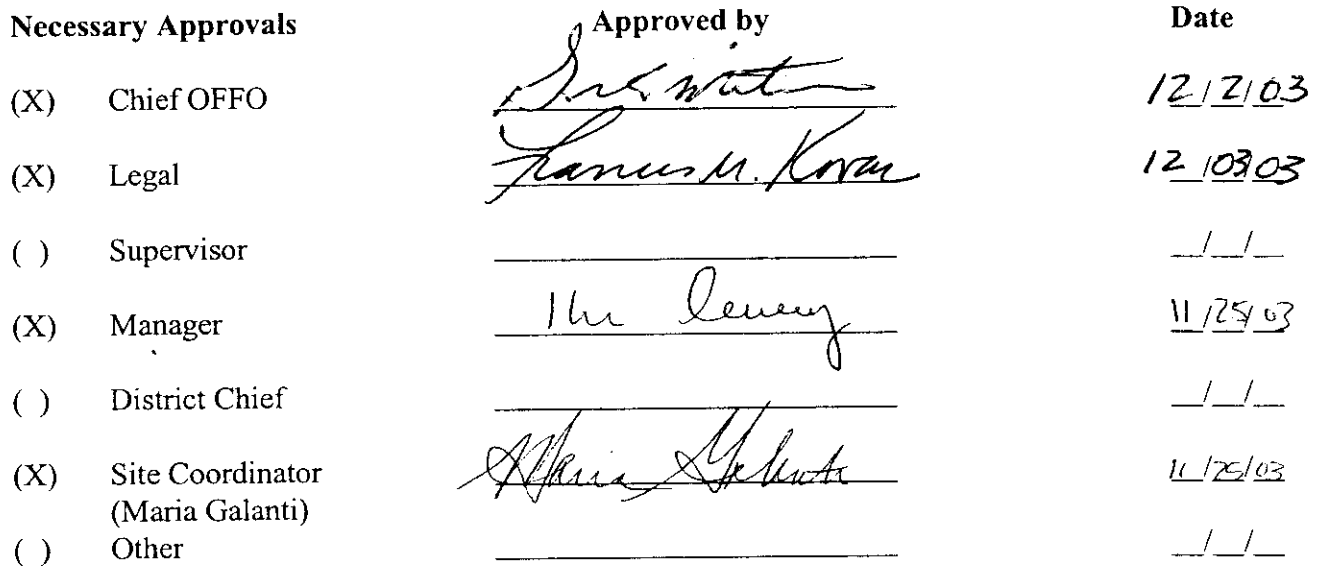 Necessary Approvals Approved by Date
(X) Chief OFFO 12/2/03
(X) Legal Francis M. Kovac 12/03/03
( ) Supervisor __/__/__
(X) Manager 11/25/03
( ) District Chief __/__/__
(X) Site Coordinator Maria Galanti 11/25/03
(Maria Galanti)
( ) Other __/__/__